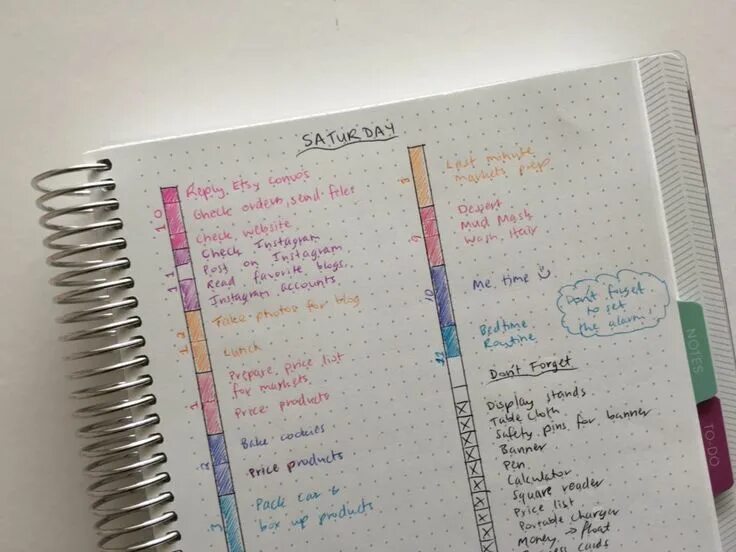 SATURDAY
10
Reply Etsy convos
Check orders, send files
Check website
11
Check Instagram
Post on Instagram
Read favorite blogs,
Instagram accounts
12
Take photos for blog
Lunch
1
Prepare price list
for markets
Price products
2
Bake cookies
Price products
3
Pack car &
box up products
8
Last minute
markets prep
9
Desert
Mud Mask
Wash Hair
10
Me time
11
Bedtime
Routine
Don't forget
to set
the alarm!
Don't Forget
Display stands
Table cloth
Safety pins for banner
Banner
Pen
Calculator
Square reader
Price list
Portable charger
Money → float
cards
NOTES
TO-DO